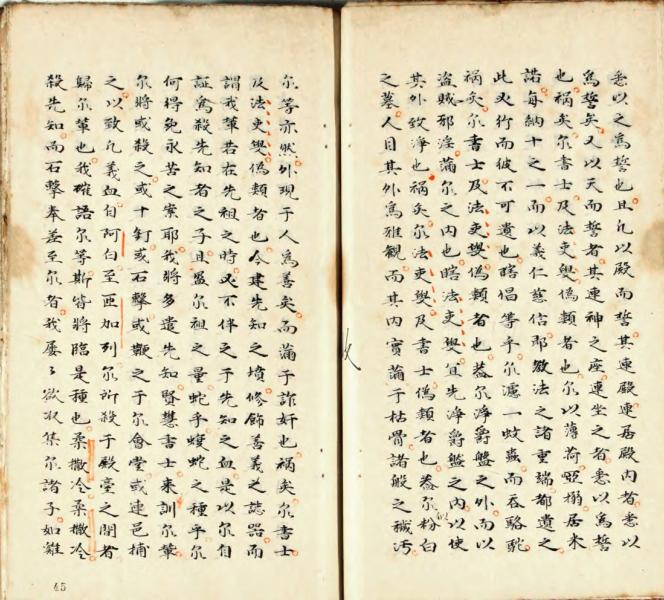 悉以之爲誓也且凡以殿而誓其連殿連居殿内者悉以
爲誓矣又以天而誓者其連神之座連坐之者悉以爲誓
也禍矣尔書士及法吏與僞類者也尔以薄荷
居米
諾每納十之一而以義仁慈信即敎法之諸重端都遺之
此必行而彼不可遺也瞎倡等乎尔濾一蚊蟲而吞駱駝
禍矣尔書士及法吏與僞類者也葢尔淨爵盤之外而以
盗賊邪淫滿尔之内也瞎法吏與宜先淨爵盤之内以使
其外致淨也禍矣尔法吏與及書士僞類者也葢尔似粉白
之墓人目其外爲雅觀而其内實滿于枯骨諸般之穢污
尔等亦然外現于人爲善矣而滿于詐奸也禍矣尔書士
及法吏與僞類者也今建先知之墳修飾善義之誌器而
謂我輩若在先祖之時必不伴之于先知之血是以尔自
証爲殺先知者之子且盈尔祖之量蛇乎蟆蛇之種乎尔
何得免永苦之案耶我將多遣先知賢慧書士來訓尔輩
尔將或殺之或十釘或石擊或鞭之于尔會堂或連邑捕
之以致凡義血自阿白至匝加列尔所殺于殿臺之間者
歸尔輩也我確語尔等斯皆將臨是種也柔撒冷柔撒冷
殺先知而石擊奉差至尔者我屡々欲収集尔諸子如雞
45